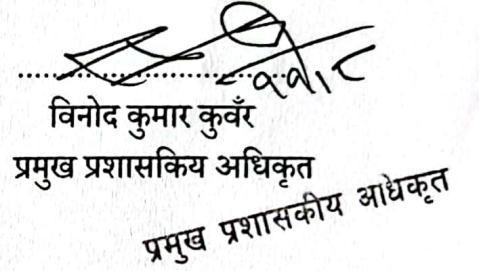 विनोद कुमार कुवँर
प्रमुख प्रशासकिय अधिकृत
प्रमुख प्रशासकीय आधिकृत